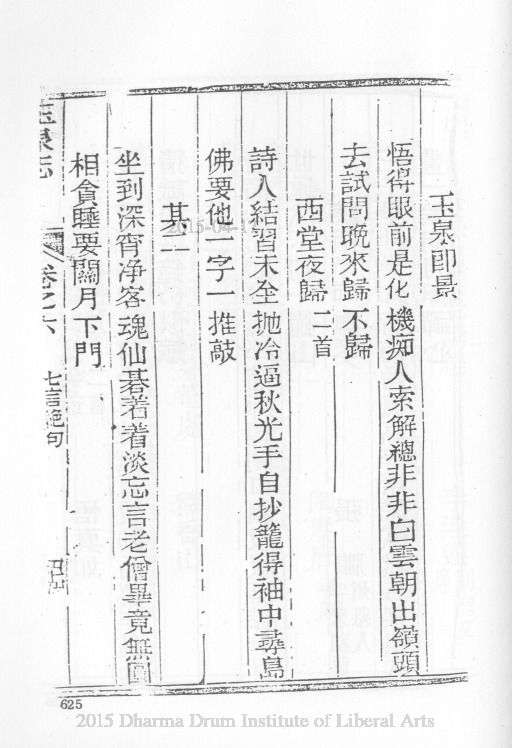 玉泉即景
悟得眼前是化機痴人索解總非非白雲朝出嶺頭
去試問晚來歸不歸
西堂夜歸 二首
詩人結習未全拋冷逼秋光手自抄籠得袖中尋島
佛要他一字一推敲
其二
坐到深宵净客魂仙碁着着淡忘言老僧畢竟無
相貪睡要關月下門
玉泉志 卷之六 七言絕句
625
2015-04-1
2015 Dharma Drum Institute of Liberal Arts